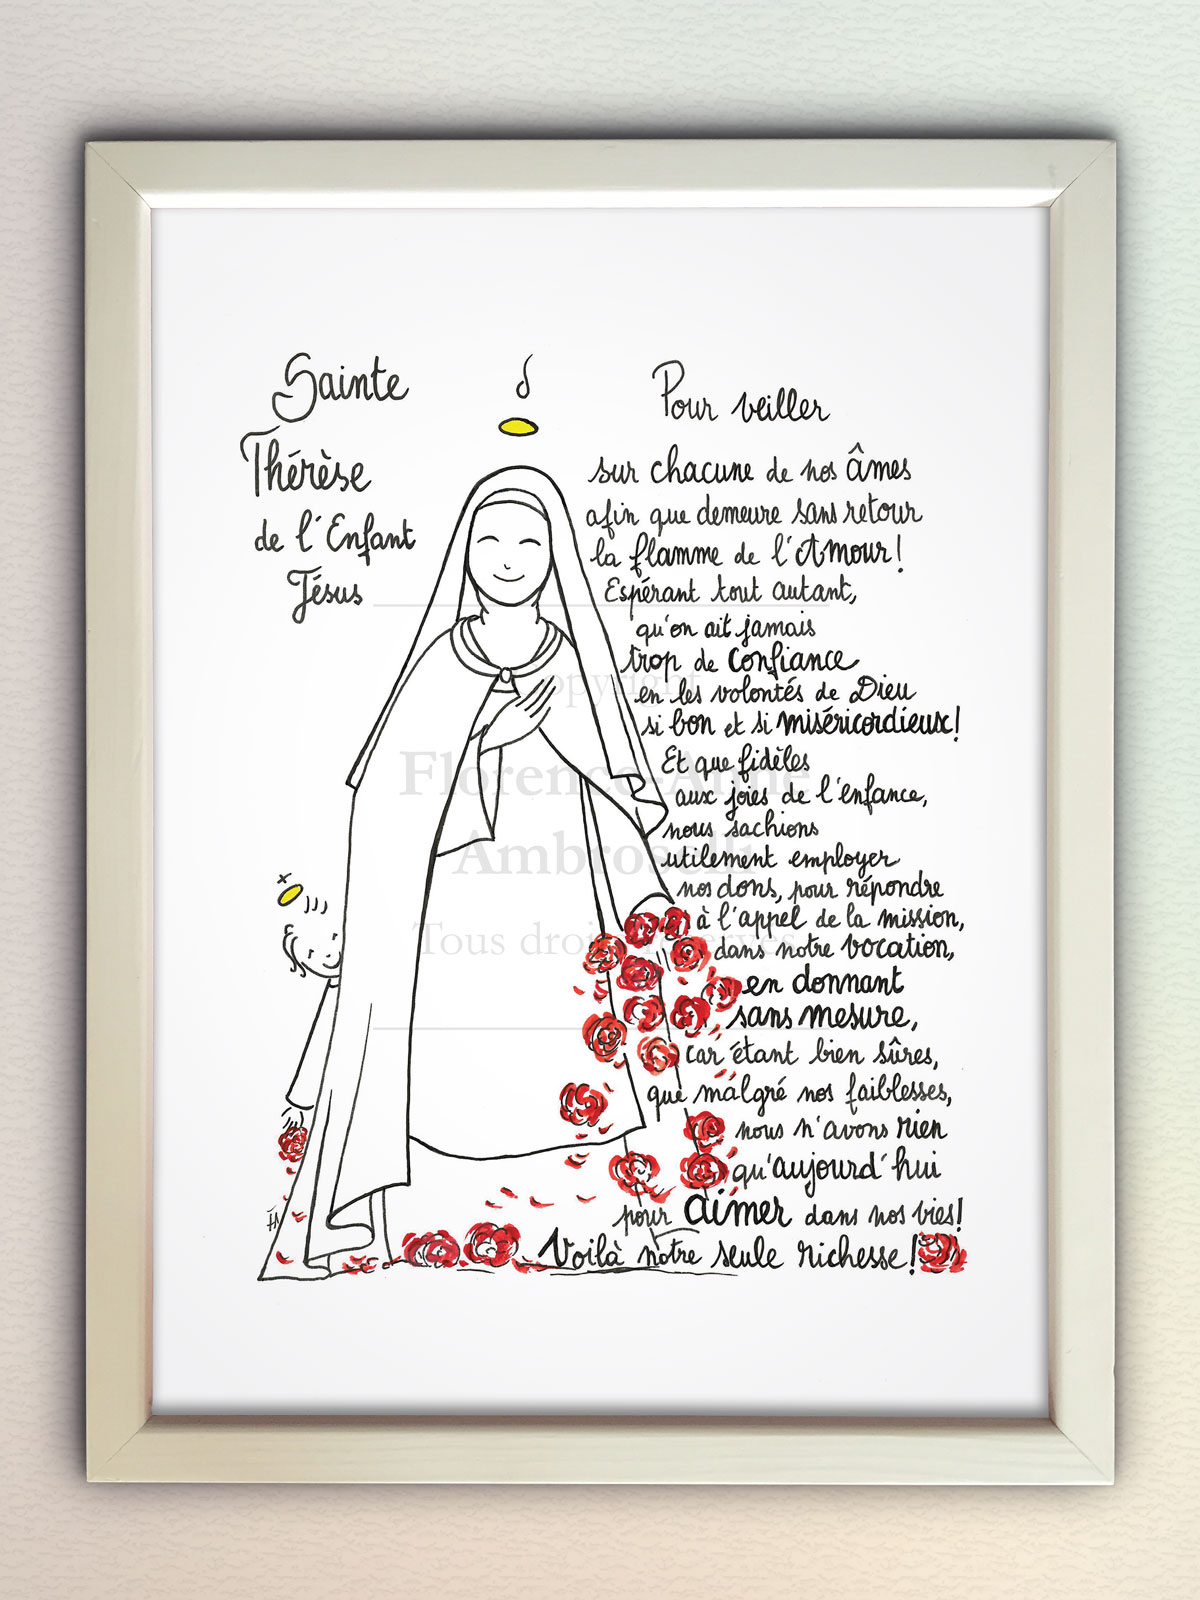 Sainte
Thérèse
de l'Enfant
Jésus
Pour veiller
sur chacune de nos âmes
afin que demeure sans retour
la flamme de l'Amour !
Espérant tout autant,
qu'on ait jamais
trop de confiance
en les volontés de Dieu
si bon et si miséricordieux !
Et que fidèles
aux joies de l'enfance,
nous sachions
utilement employer
nos dons, pour répondre
à l'appel de la mission,
dans notre vocation,
en donnant
sans mesure,
car étant bien sûres,
que malgré nos faiblesses,
nous n'avons rien
qu'aujourd'hui
pour aimer dans nos vies !
Voilà notre seule richesse !
copyright
Florence-Anne
Ambroselli
Tous droits réservés